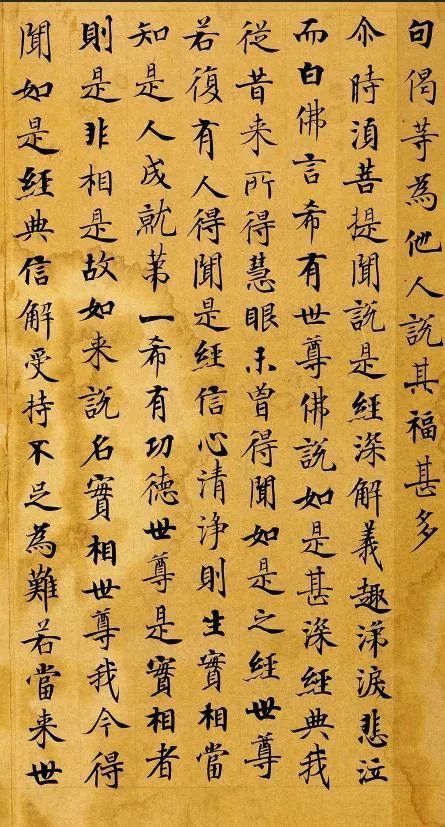 句偈等為他人説其福甚多
尒時湏菩提聞説是經深解義趣涕淚悲泣
而白佛言希有世尊佛説如是甚深經典我
從昔来所得慧眼未曾得聞如是之經世尊
若復有人得聞是經信心清浄則生實相當
知是人成就苐一希有功德世尊是實相者
則是非相是故如来説名實相世尊我今得
聞如是經典信解受持不足為難若當来世